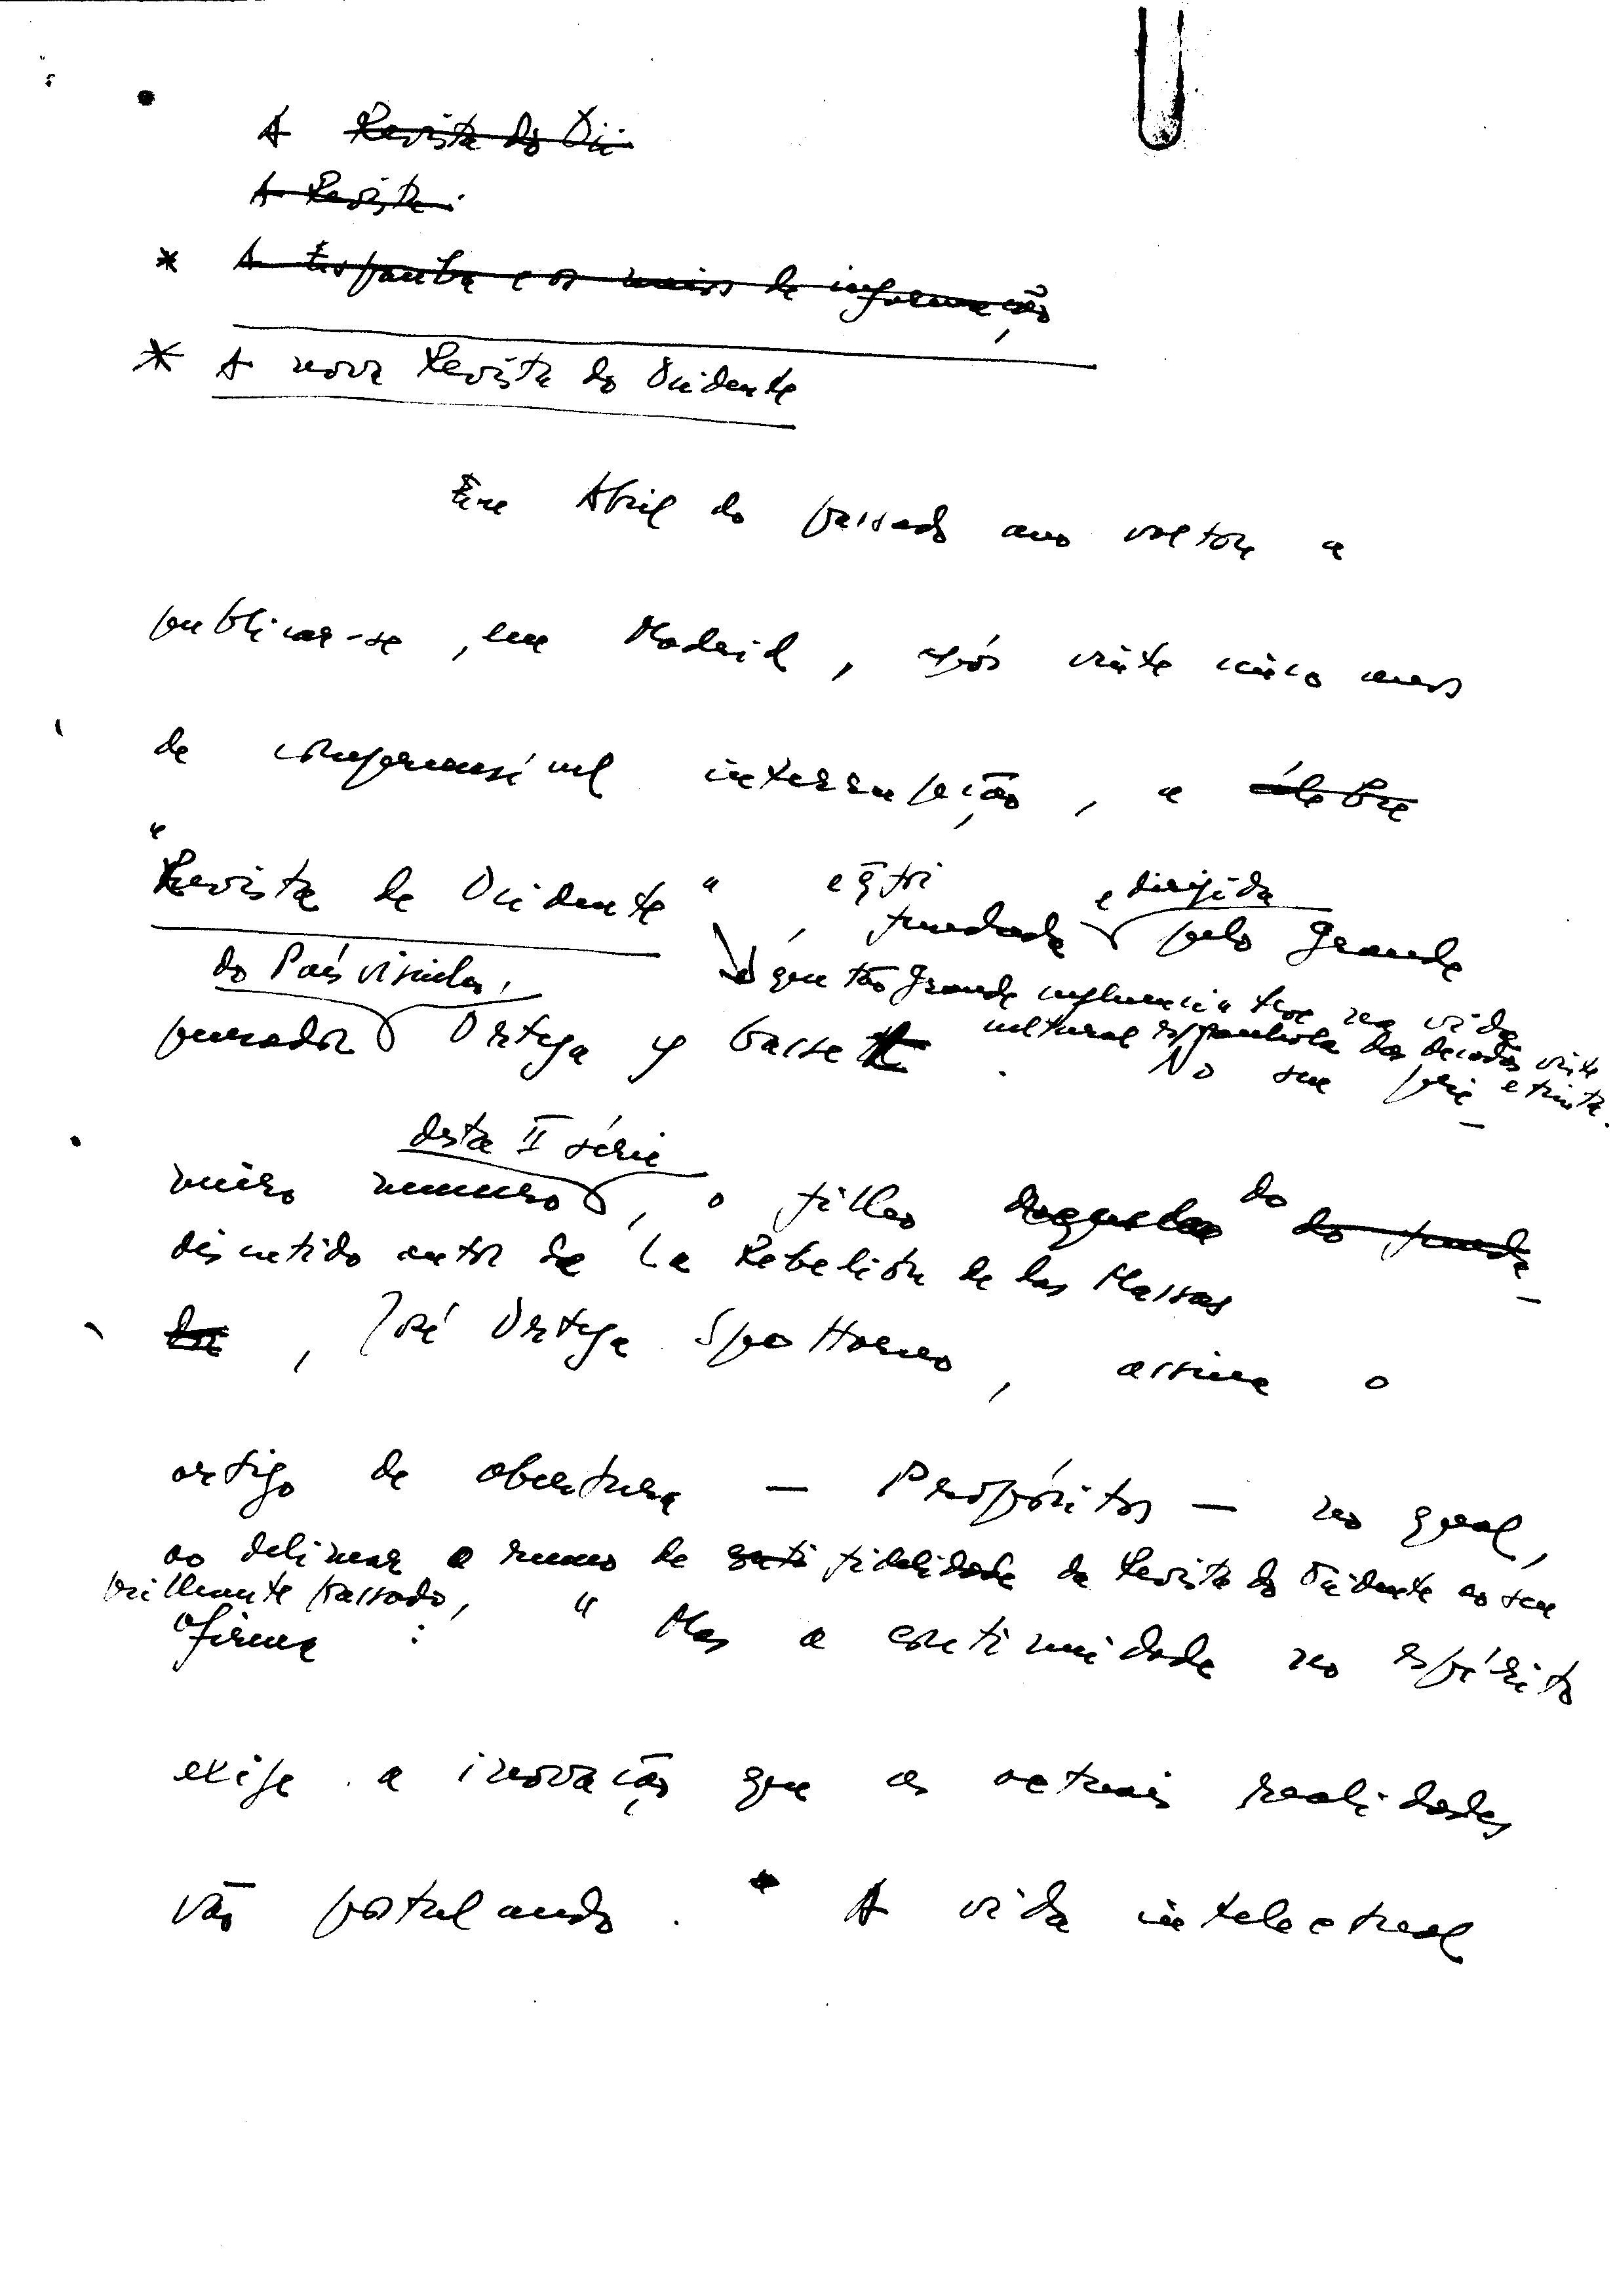 A Revista do Oci
A Revista
* A Espanha e os meios de informação
* A nova Revista do Ocidente
Em Abril do passado ano voltou a
publicar-se, em Madrid, após vinte cinco anos
de compreensível interrupção, a célebre
"Revista de Ocidente", e q foi fundada e dirigida pelo grande
que tão grande influencia teve na vida
cultural espanhola das decadas vinte
e trinta.
do País visinho,
pensador Ortega y Gasset. No seu pri-
desta II série
meiro numero, o filho do do funda-
discutido autor de La Rebelión de las Massas
dor, José Ortega Spottorno, assina o
artigo de abertura — Propósitos — no qual,
ao delinear o rumo de fidelidade da Revista do Ocidente ao seu
brilhante passado,
afirma: "Mas a continuidade no espírito
exige a inovação que as actuais realidades
vão postulando. A vida intelectual